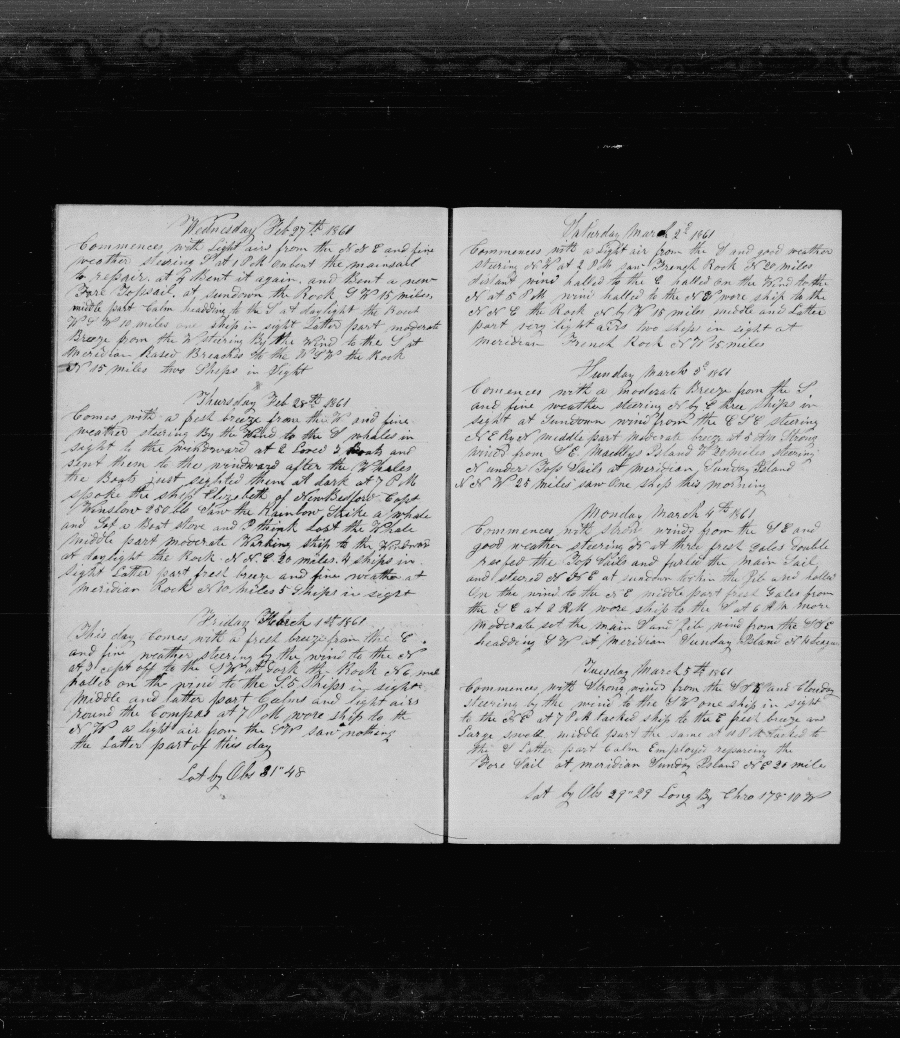 Wednesday Feb 27th 1861
Commences with Light airs from the N N E and fine
weather steering S at 1 P.M. unbent the mainsail
to repair. at 2 Bent it again. and Bent a new
Fore Topsail. at sundown the Rock S W 15 miles,
middle part Calm headding to the S at daylight the Rock
W S W 10 miles one Ship in sight Latter part moderate
Breeze from the W steering By the Wind to the S at
Meridian Raised Breaches to the W S W the Rock
N 15 miles two Ships in Sight
Thursday Feb 28th 1861
Comes with a fresh breeze from the W and fine
weather steering By the Wind to the S whales in
sight to the windward at 2 Lowed 3 Boats and
sent them to the windward after the Whales
the Boats just sighted them at dark at 7 P.M
spoke the ship Elizabeth of New Bedford Capt
Winslow 250 bbls Saw the Rainbow Strike a whale
and Got a Boat stove and I think Lost the Whale
middle part moderate Working ship to the Windward
at daylight the Rock N N E 20 miles. 4 ships in
sight Latter part fresh breeze and fine weather at
meridian Rock N 20 miles 5 Ships in sight
Friday March 1st 1861
This day Comes with a fresh breeze from the E
and fine weather steering by the wind to the N
at 3 kept off to the S W at dark the Rock N 6 mile
halled on the wind to the S. 5 Ships in sight.
Middle and latter part Calms and Light airs
round the Compas at 7 P.M wore ship to the
N W a light air from the S W saw nothing
the Latter part of this day
Lat by Obs 31" 48
Saturday March 2d 1861
Commences with a Light air from the S and good weather
steering N W at 2 P.M saw French Rock N 20 miles
distant wind halled to the E halled on the Wind to the
N at 5 P.M wind halled to the N wore ship to the
N N E the Rock N by W 15 miles middle and Latter
part very light airs two ships in sight at
meridian French Rock N W 15 miles
Sunday March 3d 1861
Comences with a Moderate Breeze from the S.
and fine weather steering N by E three Ships in
sight at Sundown wind from the E S E steering
N E by N middle part moderate breeze at 5 A.M Strong
wind from S E Macdleys Island W 20 miles steering
N under Top Sails at meridian, Sunday Island
N N W 25 miles saw One ship this morning
Monday March 4th 1861
Commences with strong winds from the S E and
good weather steering N at three fresh gales double
reefed the Top Sails and furled the main Sail,
and steered N N E at sundown took in the Jib and halled
On the wind to the N E middle part fresh Gales from
the S E at 2 A.M wore ship to the S at 6 A.M more
moderate set the main Sail Jib wind from the S S E
headding S W at Meridian Sunday Island N 4 Leagues
Tuesday March 5th 1861
Commences with Strong winds from the S S E and Cloudy
Steering by the wind to the S W one ship in sight
to the N E at 7 P.M tacked ship to the E fresh breeze and
Large swell middle part the same at 11 P.M tacked to
the S Latter part Calm Employd repairing the
Fore Sail at meridian Sunday Island N E 20 mile
Lat by Obs 29" 29 Long By Chro 178"10 W